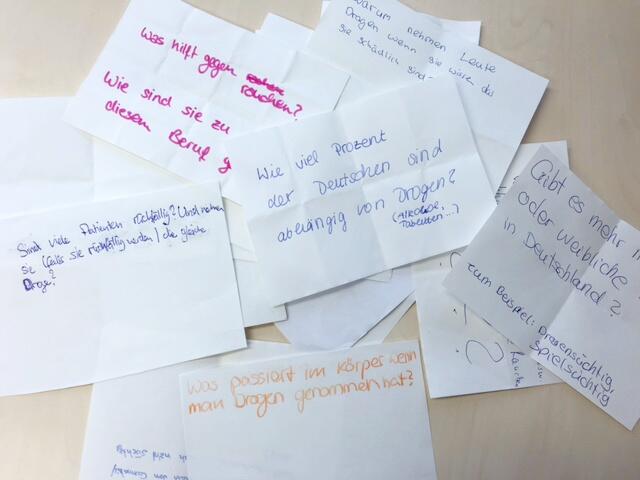 Warum nehmen Leute
Drogen wenn sie
sie schädlich sind
Was hilft gegen
rauchen?
Wie sind sie zu
diesem Beruf g
Wie viel Prozent
der Deutschen sind
abhängig von Drogen?
(Alkohol,
Tabletten...)
Gibt es mehr
oder weibliche
in Deutschland?
zum Beispiel: Drogensüchtig,
Spielsüchtig
Sind viele Patienten rückfällig? Und nehmen
sie (falls sie rückfällig werden) die gleiche
Droge?
Was passiert im Körper wenn
man Drogen genommen hat?